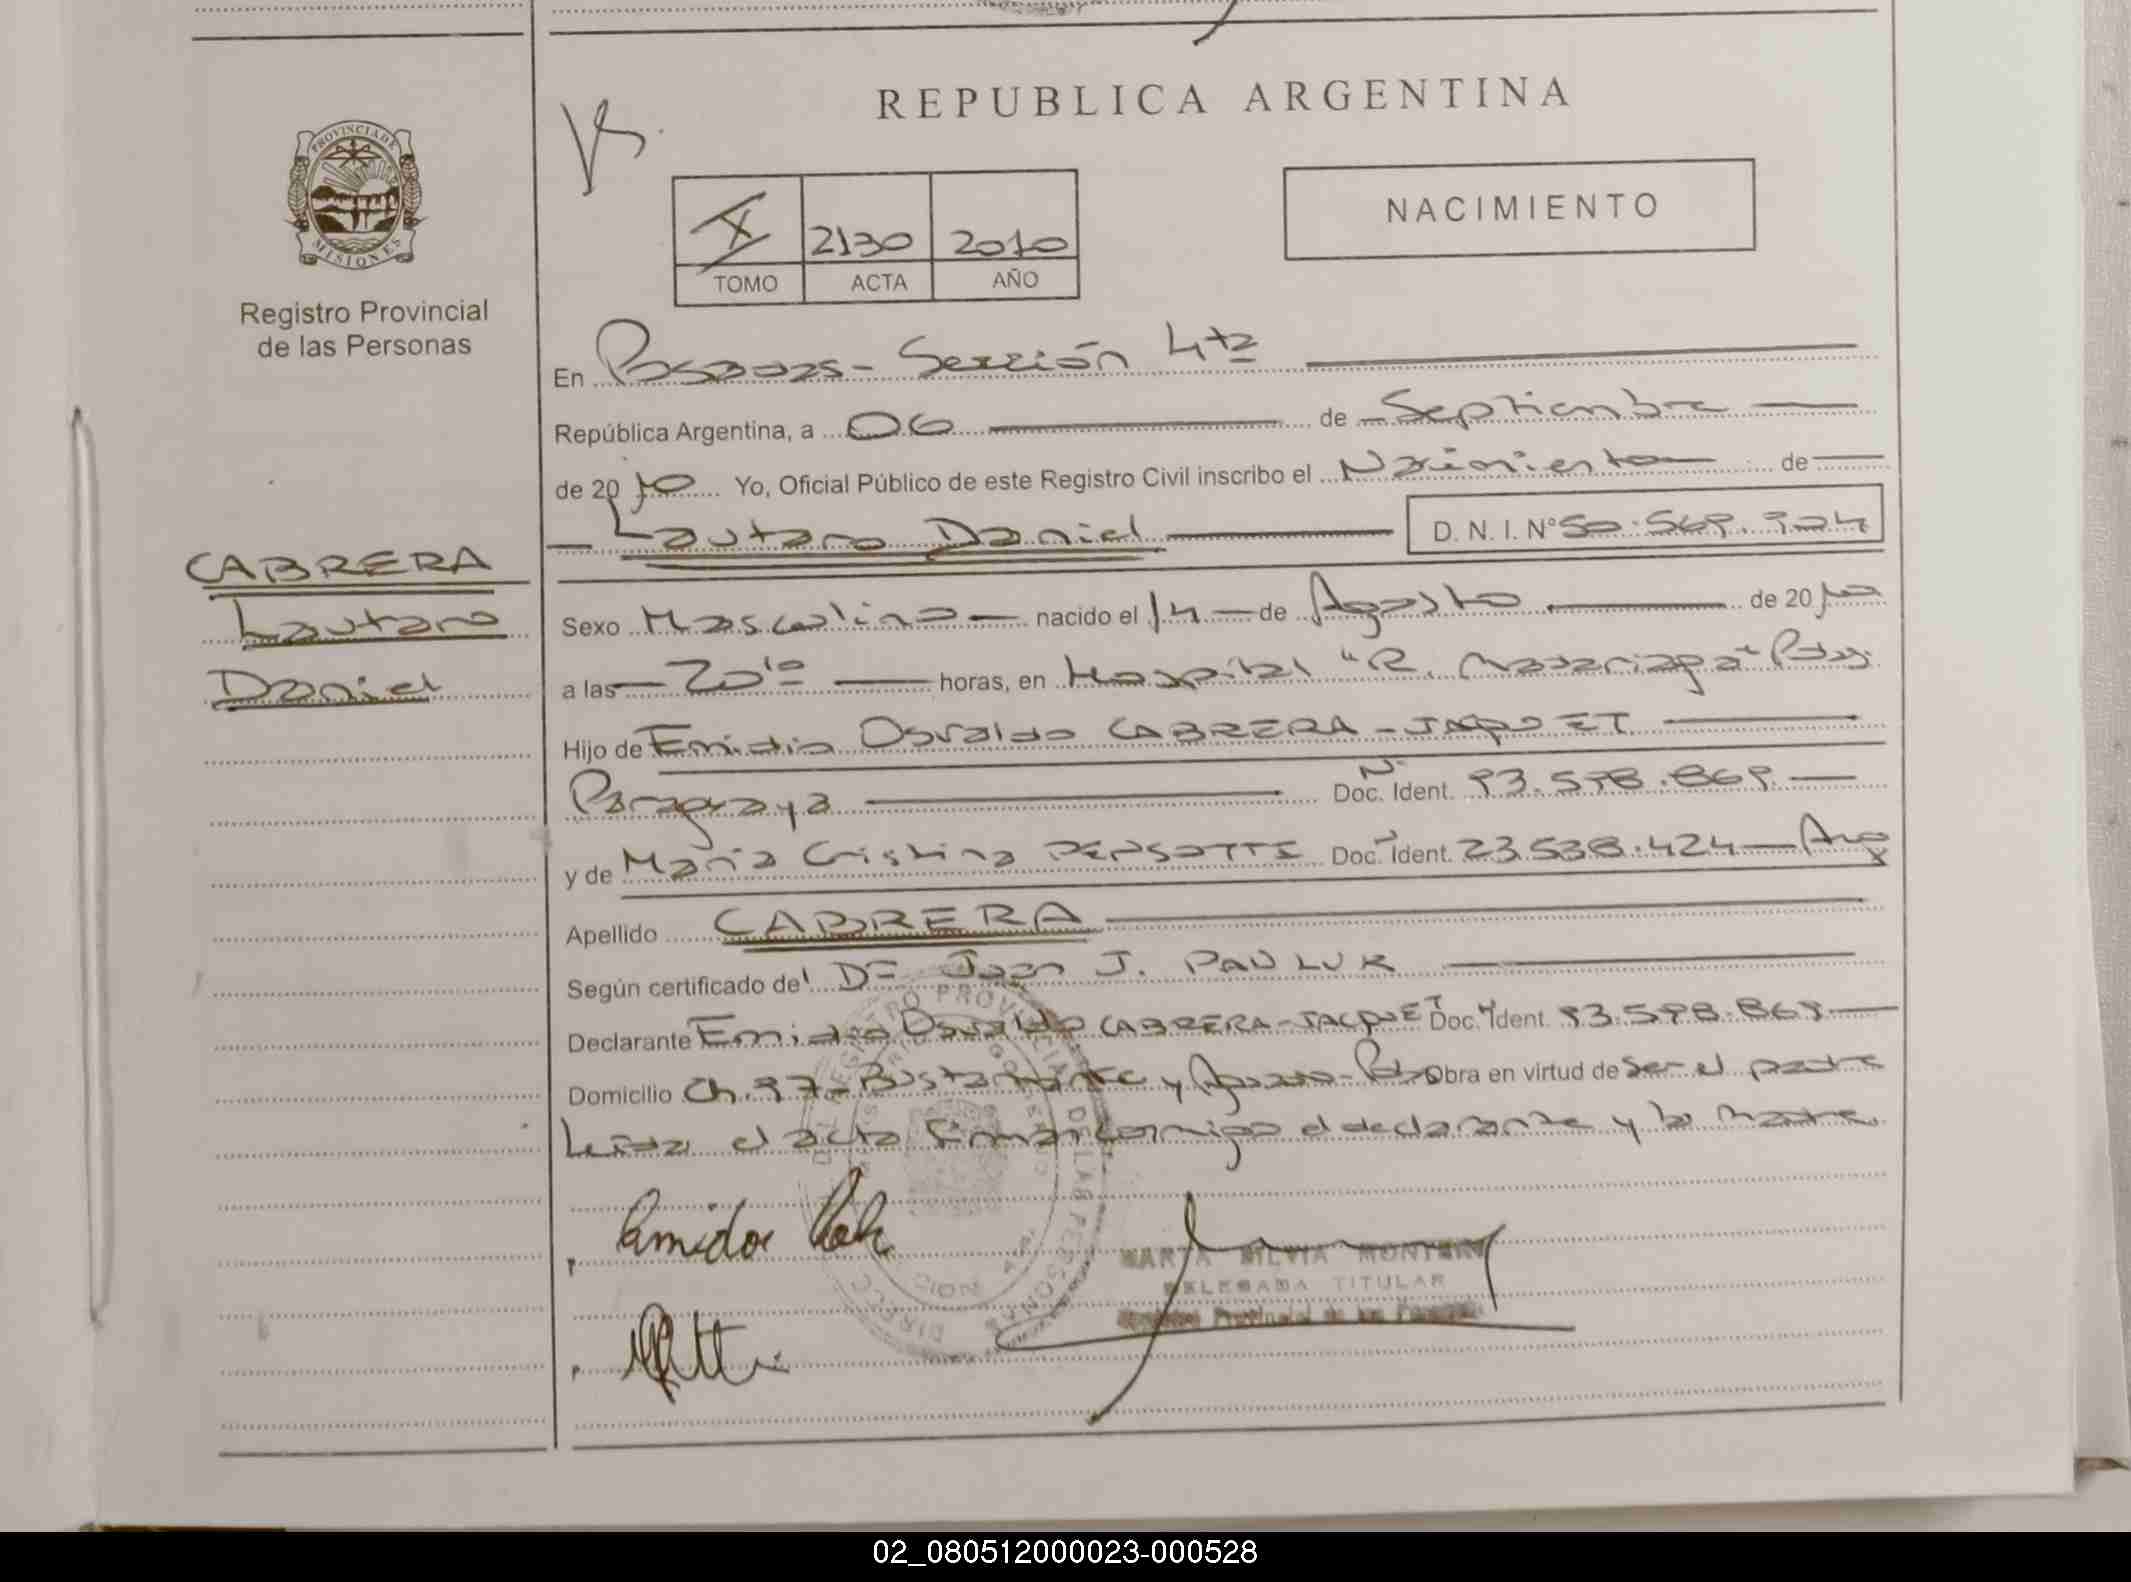 REPUBLICA ARGENTINA
PROVINCIA DE MISIONES
Registro Provincial
de las Personas
X 2130 2010
TOMO ACTA AÑO
NACIMIENTO
En Posadas - Sección 4ta
República Argentina, a 06 de Septiembre
de 2010 Yo, Oficial Público de este Registro Civil inscribo el Nacimiento de
Lautaro Daniel D. N. I. Nº 50.569.924
CABRERA
Lautaro
Daniel
Sexo Masculino nacido el 14 de Agosto de 2010
a las 20 10 horas, en Hospital "R. Madariaga" Pdas.
Hijo de Emidio Osvaldo CABRERA - JAQUET
Paraguaya Doc. Ident. 93.598.869
y de María Cristina PERSOTTI Doc. Ident. 23.538.424 - Arg
Apellido CABRERA
Según certificado del Dr Juan J. PAULUK
Declarante Emidio Osvaldo CABRERA - JACQUET Doc. Ident. 93.598.869
Domicilio Ch. 97 - Bustamante y - Pdas Obra en virtud de Ser el padre
Leída el acta firman conmigo el declarante y la madre
MARTA SILVIA MONTERO
DELEGADA TITULAR
Registro Provincial de las Personas
02_080512000023-000528